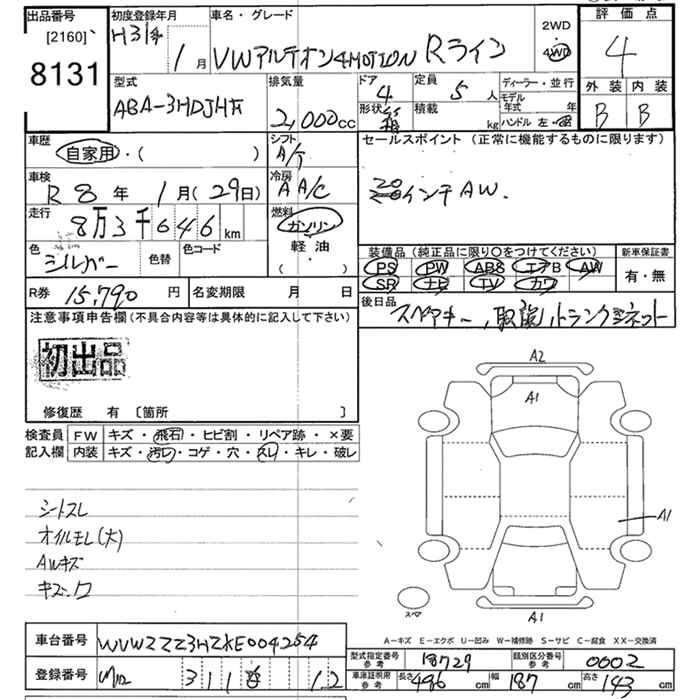 出品番号 初度登録年月 車名・グレード 2WD 評価点
[2160] H31年 1月 VWアルテオン4MOTION Rライン 4WD 4
8131
型式 排気量 ドア 定員 ディーラー・並行 外装 内装
ABA-3HDJHF 2,000cc 4 5人 モデル年式 年 B B
形状 箱 積載 kg ハンドル 左・右
車歴 シフト セールスポイント (正常に機能するものに限ります)
自家用・( ) A/T
車検 冷房 20インチAW.
R8年 1月(29日) A A/C
走行 燃料
8万3千646km ガソリン
色 色替 色コード 軽油 装備品(純正品に限り○をつけてください) 新車保証書
シルバー ( ) PS PW ABS エアB AW 有・無
SR ナビ TV カワ
R券 15,790円 名変期限 月 日 後日品
スペアキー,取説,トランクネット
注意事項申告欄(不具合内容等は具体的に記入して下さい)
初出品
修復歴 有 〔箇所 〕
検査員 FW キズ・飛石・ヒビ割・リペア跡・×要
記入欄 内装 キズ・汚レ・コゲ・穴・スレ・キレ・破レ
A2
A1
A1
A1
シートスレ
オイルモレ(大)
AWキズ
キズ
スペア
A-キズ E-エクボ U-凹み W-補修跡 S-サビ C-腐食 XX-交換済
車台番号 WVWZZZ3HZKE004254
型式指定番号 参考 18729 類別区分番号 参考 0002
登録番号 311 12
車庫証明用 参考 長さ 486cm 幅 187cm 高さ 143cm